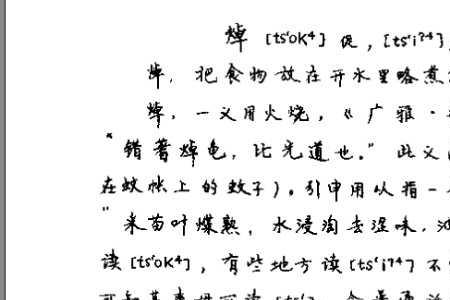 焯 [ts'oK⁴] 促, [ts'i?⁴]
焯, 把食物放在开水里略煮
焯, 一义用火烧, 《广雅·
"错蓍焯龟, 比先道也。" 此义
在蚊帐上的蚊子)。引申用以指一
"采苗叶煠熟, 水浸淘去涩味, 油
读 [ts'oK⁴], 有些地方读 [ts'i?⁴] 不